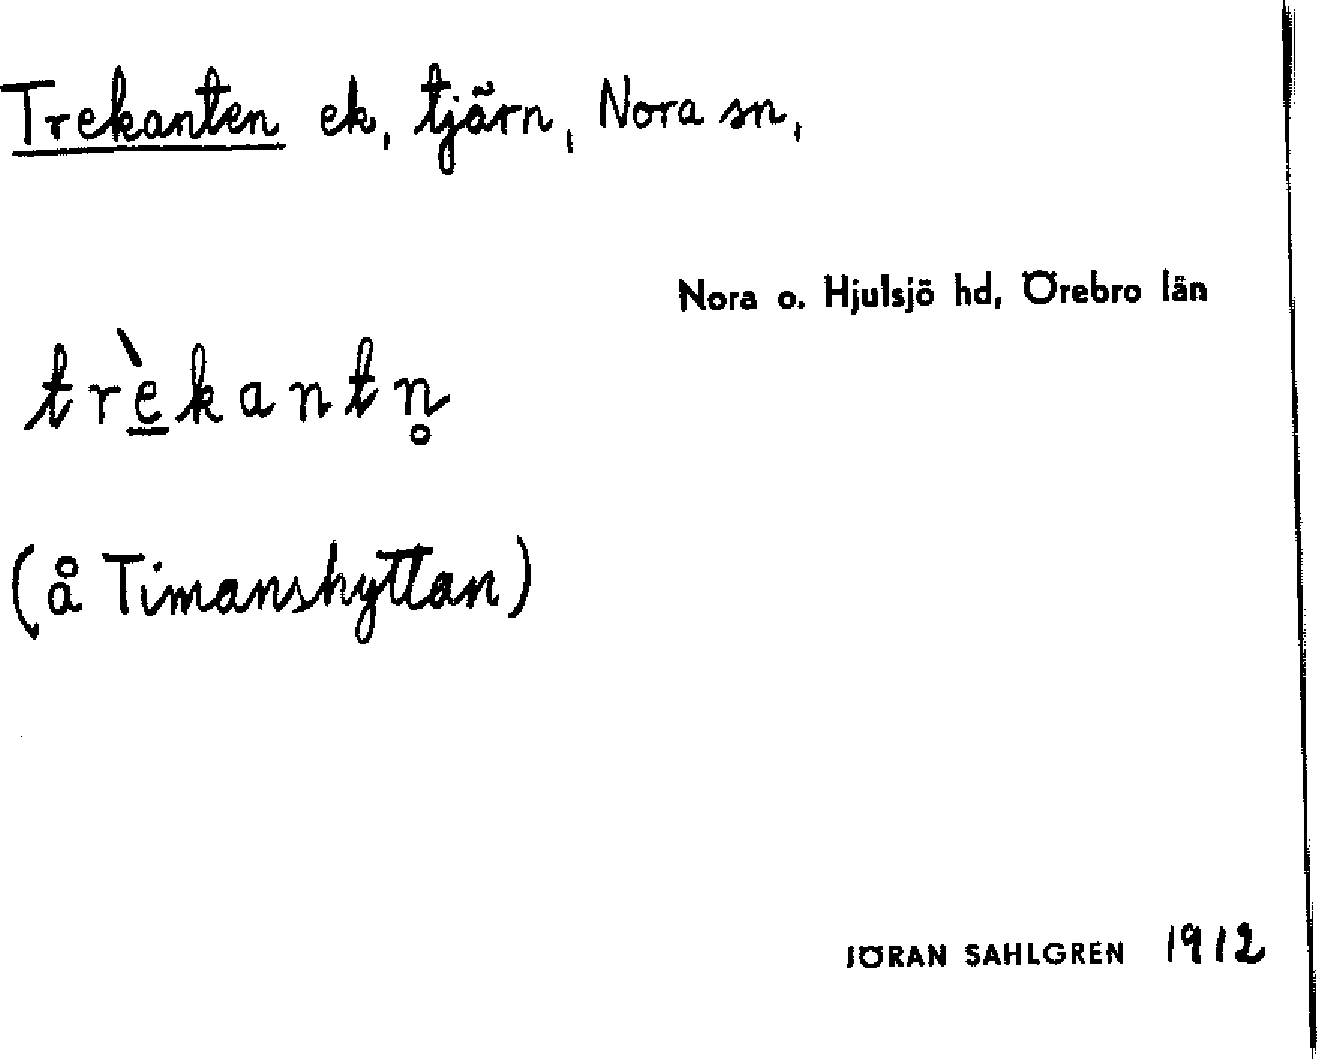 Trekanten ek, tjärn, Nora sn,
Nora o. Hjulsjö hd, Örebro län
trè̲kantn̥
(å Timanshyttan)
JÖRAN SAHLGREN 1912